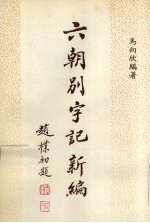 馬向欣編著
六朝別字記新編
趙樸初題